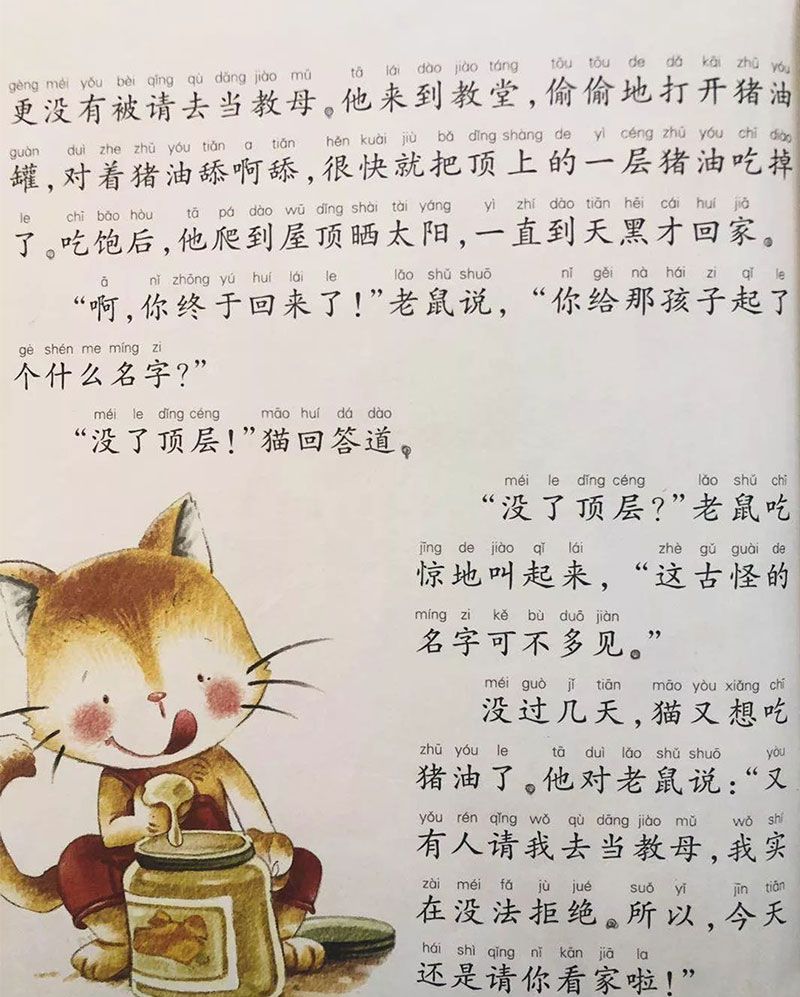 gèng méi yǒu bèi qǐng qù dāng jiào mǔ tā lái dào jiào táng tōu tōu de dǎ kāi zhū yóu
更没有被请去当教母。他来到教堂，偷偷地打开猪油
guàn duì zhe zhū yóu tiǎn a tiǎn hěn kuài jiù bǎ dǐng shàng de yì céng zhū yóu chī diào
罐，对着猪油舔啊舔，很快就把顶上的一层猪油吃掉
le chī bǎo hòu tā pá dào wū dǐng shài tài yáng yì zhí dào tiān hēi cái huí jiā
了。吃饱后，他爬到屋顶晒太阳，一直到天黑才回家。
ā nǐ zhōng yú huí lái le lǎo shǔ shuō nǐ gěi nà hái zi qǐ le
“啊，你终于回来了！”老鼠说，“你给那孩子起了
gè shén me míng zi
个什么名字？”
méi le dǐng céng māo huí dá dào
“没了顶层！”猫回答道。
méi le dǐng céng lǎo shǔ chī
“没了顶层？”老鼠吃
jīng de jiào qǐ lái zhè gǔ guài de
惊地叫起来，“这古怪的
míng zi kě bù duō jiàn
名字可不多见。”
méi guò jǐ tiān māo yòu xiǎng chī
没过几天，猫又想吃
zhū yóu le tā duì lǎo shǔ shuō yòu
猪油了。他对老鼠说：“又
yǒu rén qǐng wǒ qù dāng jiào mǔ wǒ shí
有人请我去当教母，我实
zài méi fǎ jù jué suǒ yǐ jīn tiān
在没法拒绝。所以，今天
hái shì qǐng nǐ kān jiā la
还是请你看家啦！”